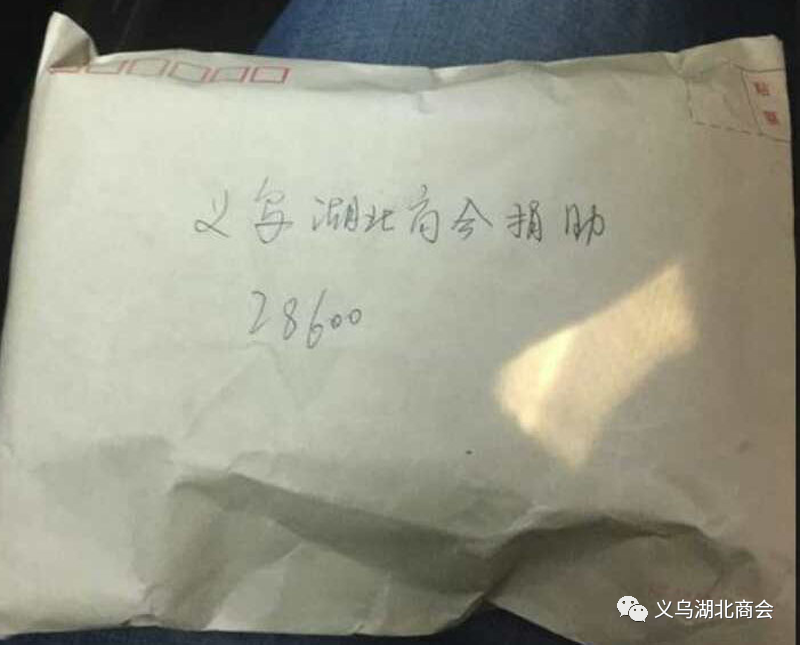 贴 票
义乌湖北商会捐助
28600
义乌湖北商会